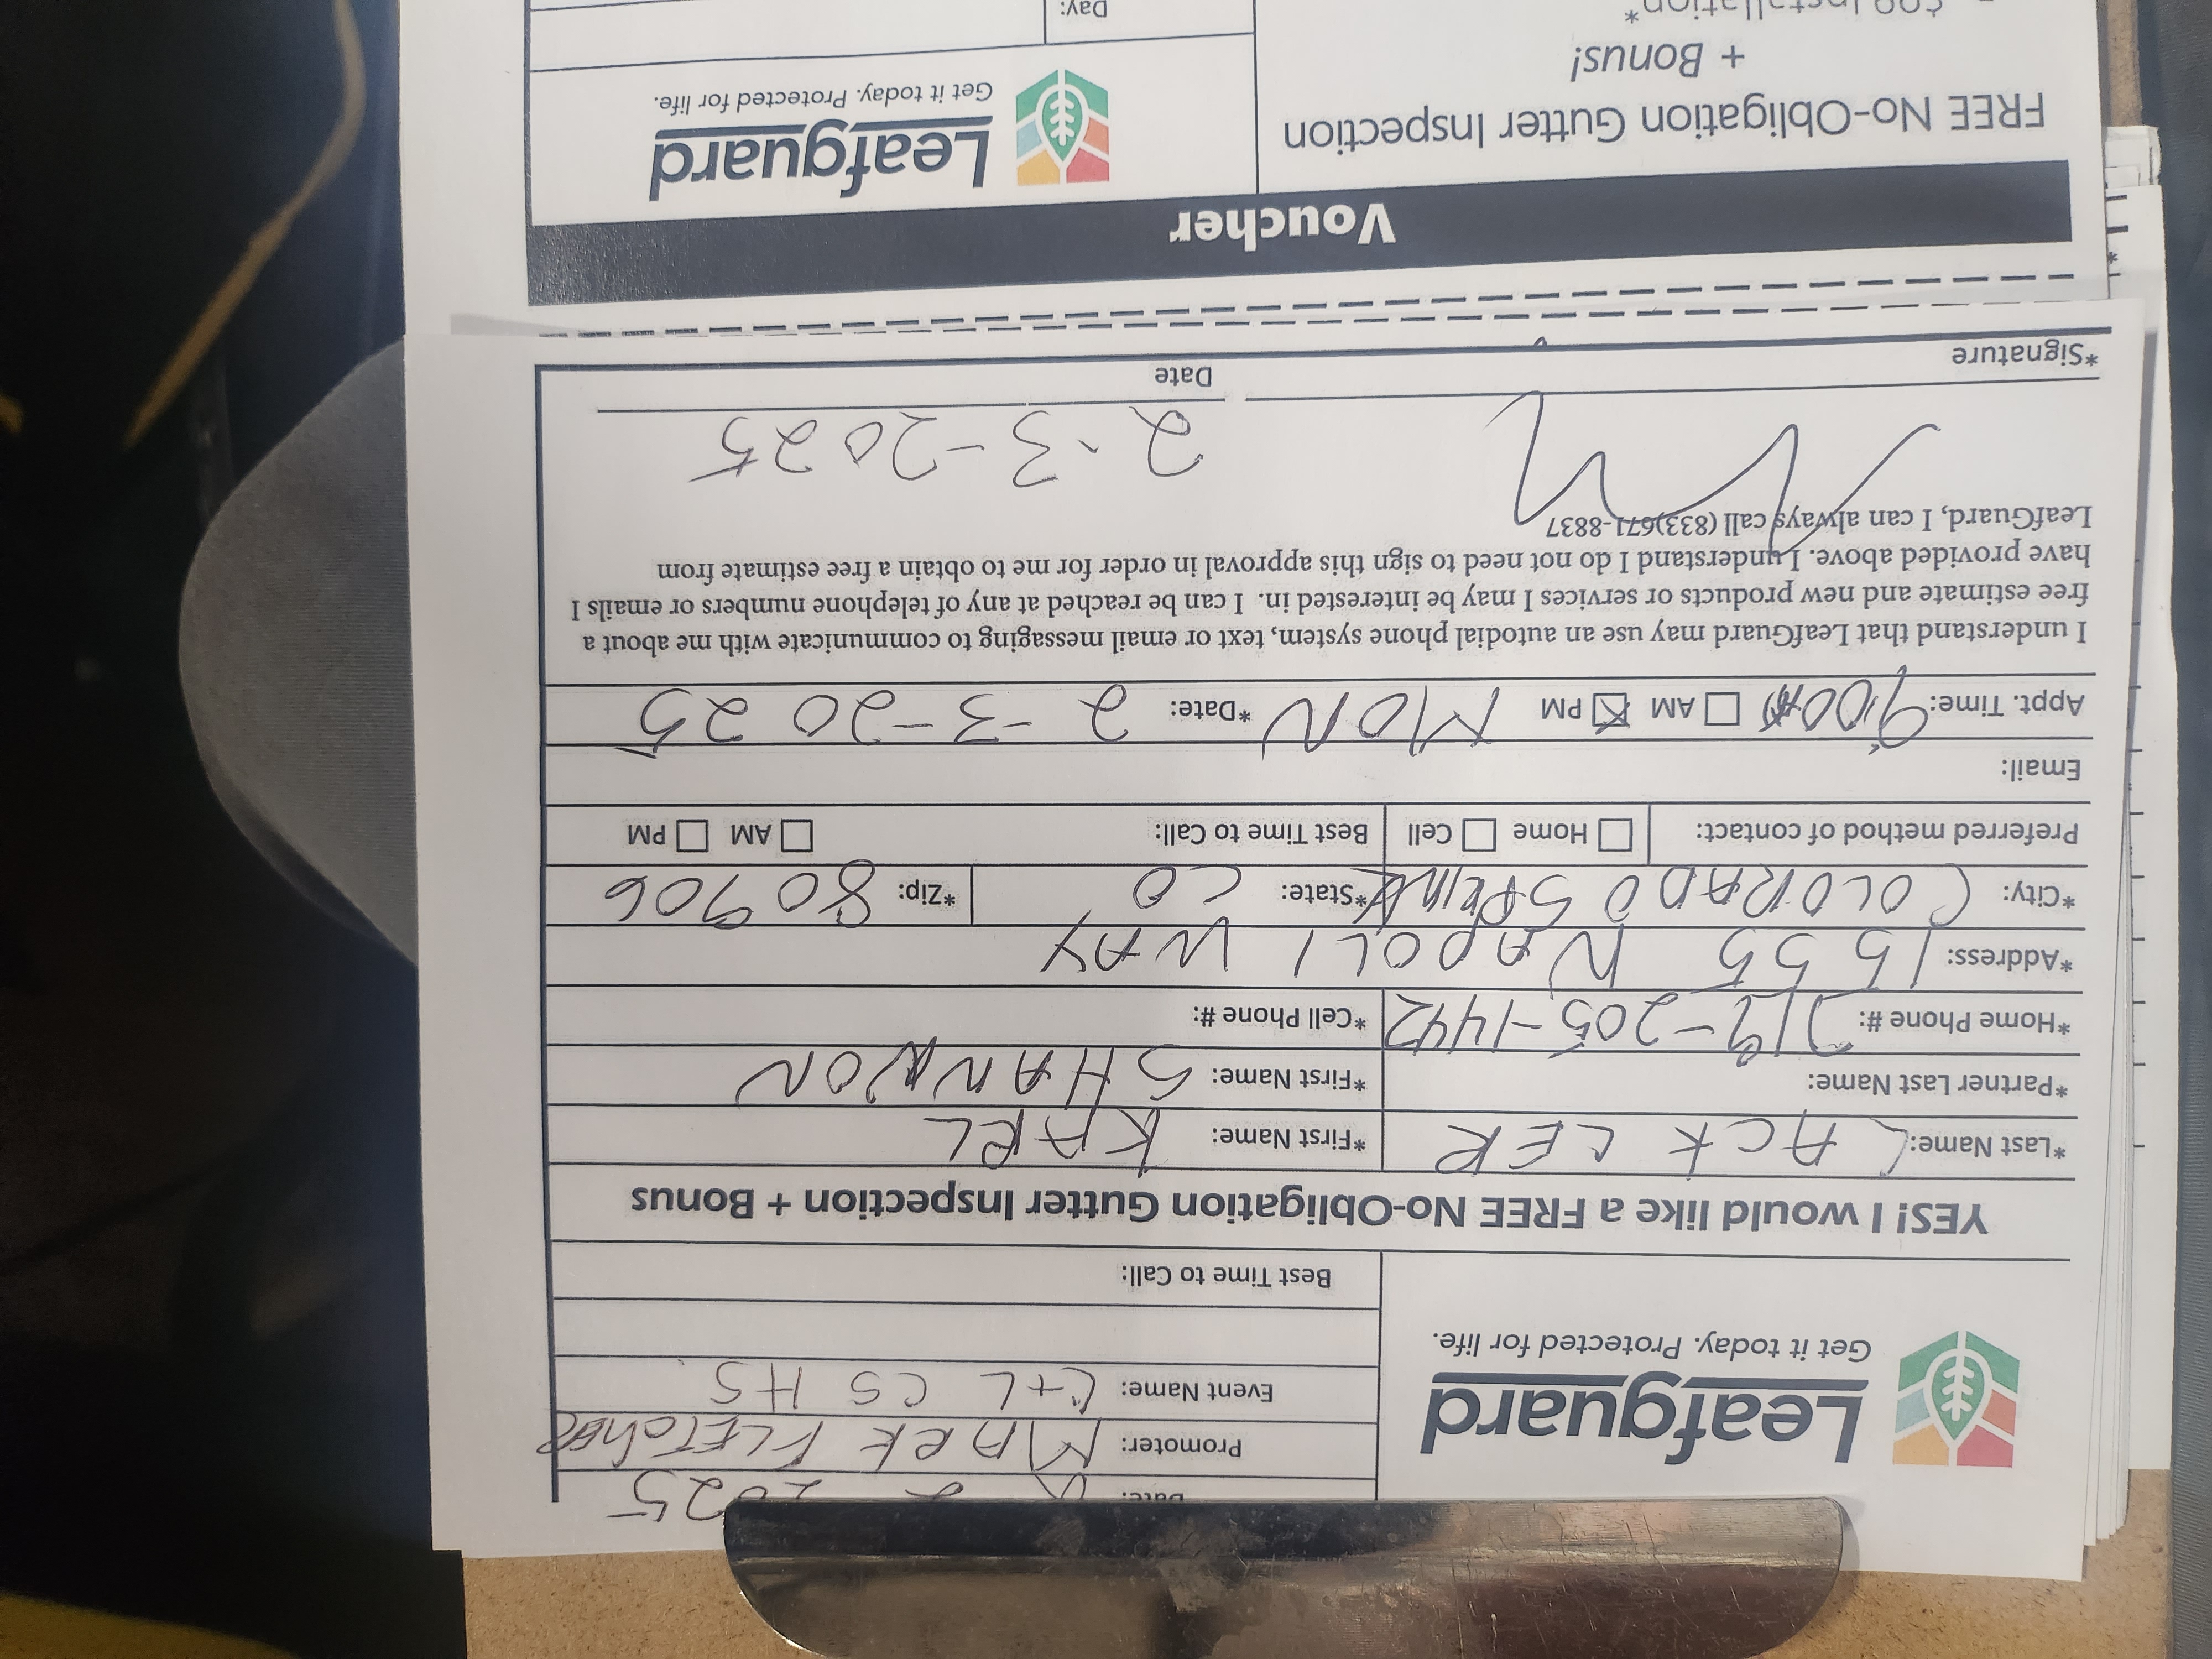 Leafguard
Get it today. Protected for life.
Date: 2025
Promoter: MARK FLETCHER
Event Name: C+L CS HS
Best Time to Call:
YES! I would like a FREE No-Obligation Gutter Inspection + Bonus
*Last Name: LACKCER *First Name: KARL
*Partner Last Name: *First Name: SHANNON
*Home Phone #: 719-205-1442 *Cell Phone #:
*Address: 1555 NAPOLI WAY
*City: COLORADO *State: CO *Zip: 80906
Preferred method of contact: Home Cell Best Time to Call: AM PM
Email:
Appt. Time: AM PM MON *Date: 2-3-2025
I understand that LeafGuard may use an autodial phone system, text or email messaging to communicate with me about a
free estimate and new products or services I may be interested in. I can be reached at any of telephone numbers or emails I
have provided above. I understand I do not need to sign this approval in order for me to obtain a free estimate from
LeafGuard, I can always call (833)671-8837
2-3-2025
*Signature Date
Voucher
FREE No-Obligation Gutter Inspection
+ Bonus!
Leafguard
Get it today. Protected for life.
Day: